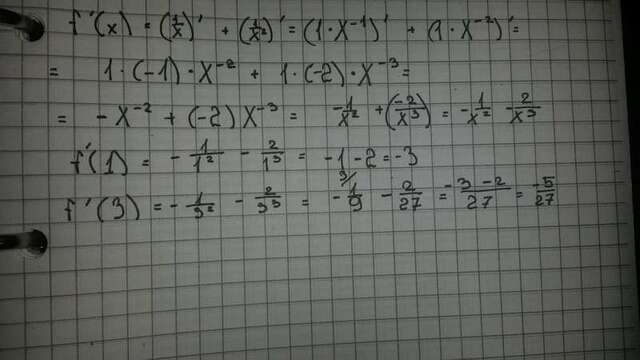 f'(x) = (1/x)' + (1/x²)' = (1·x⁻¹)' + (1·x⁻²)' =
= 1·(-1)·x⁻² + 1·(-2)·x⁻³ =
= -x⁻² + (-2)x⁻³ = -1/x² + (-2/x³) = -1/x² 2/x³
f'(1) = -1/1² - 2/1³ = -1-2 = -3
f'(3) = -1/3² - 2/3³ = -³⁄1/9 - 2/27 = -3-2/27 = -5/27